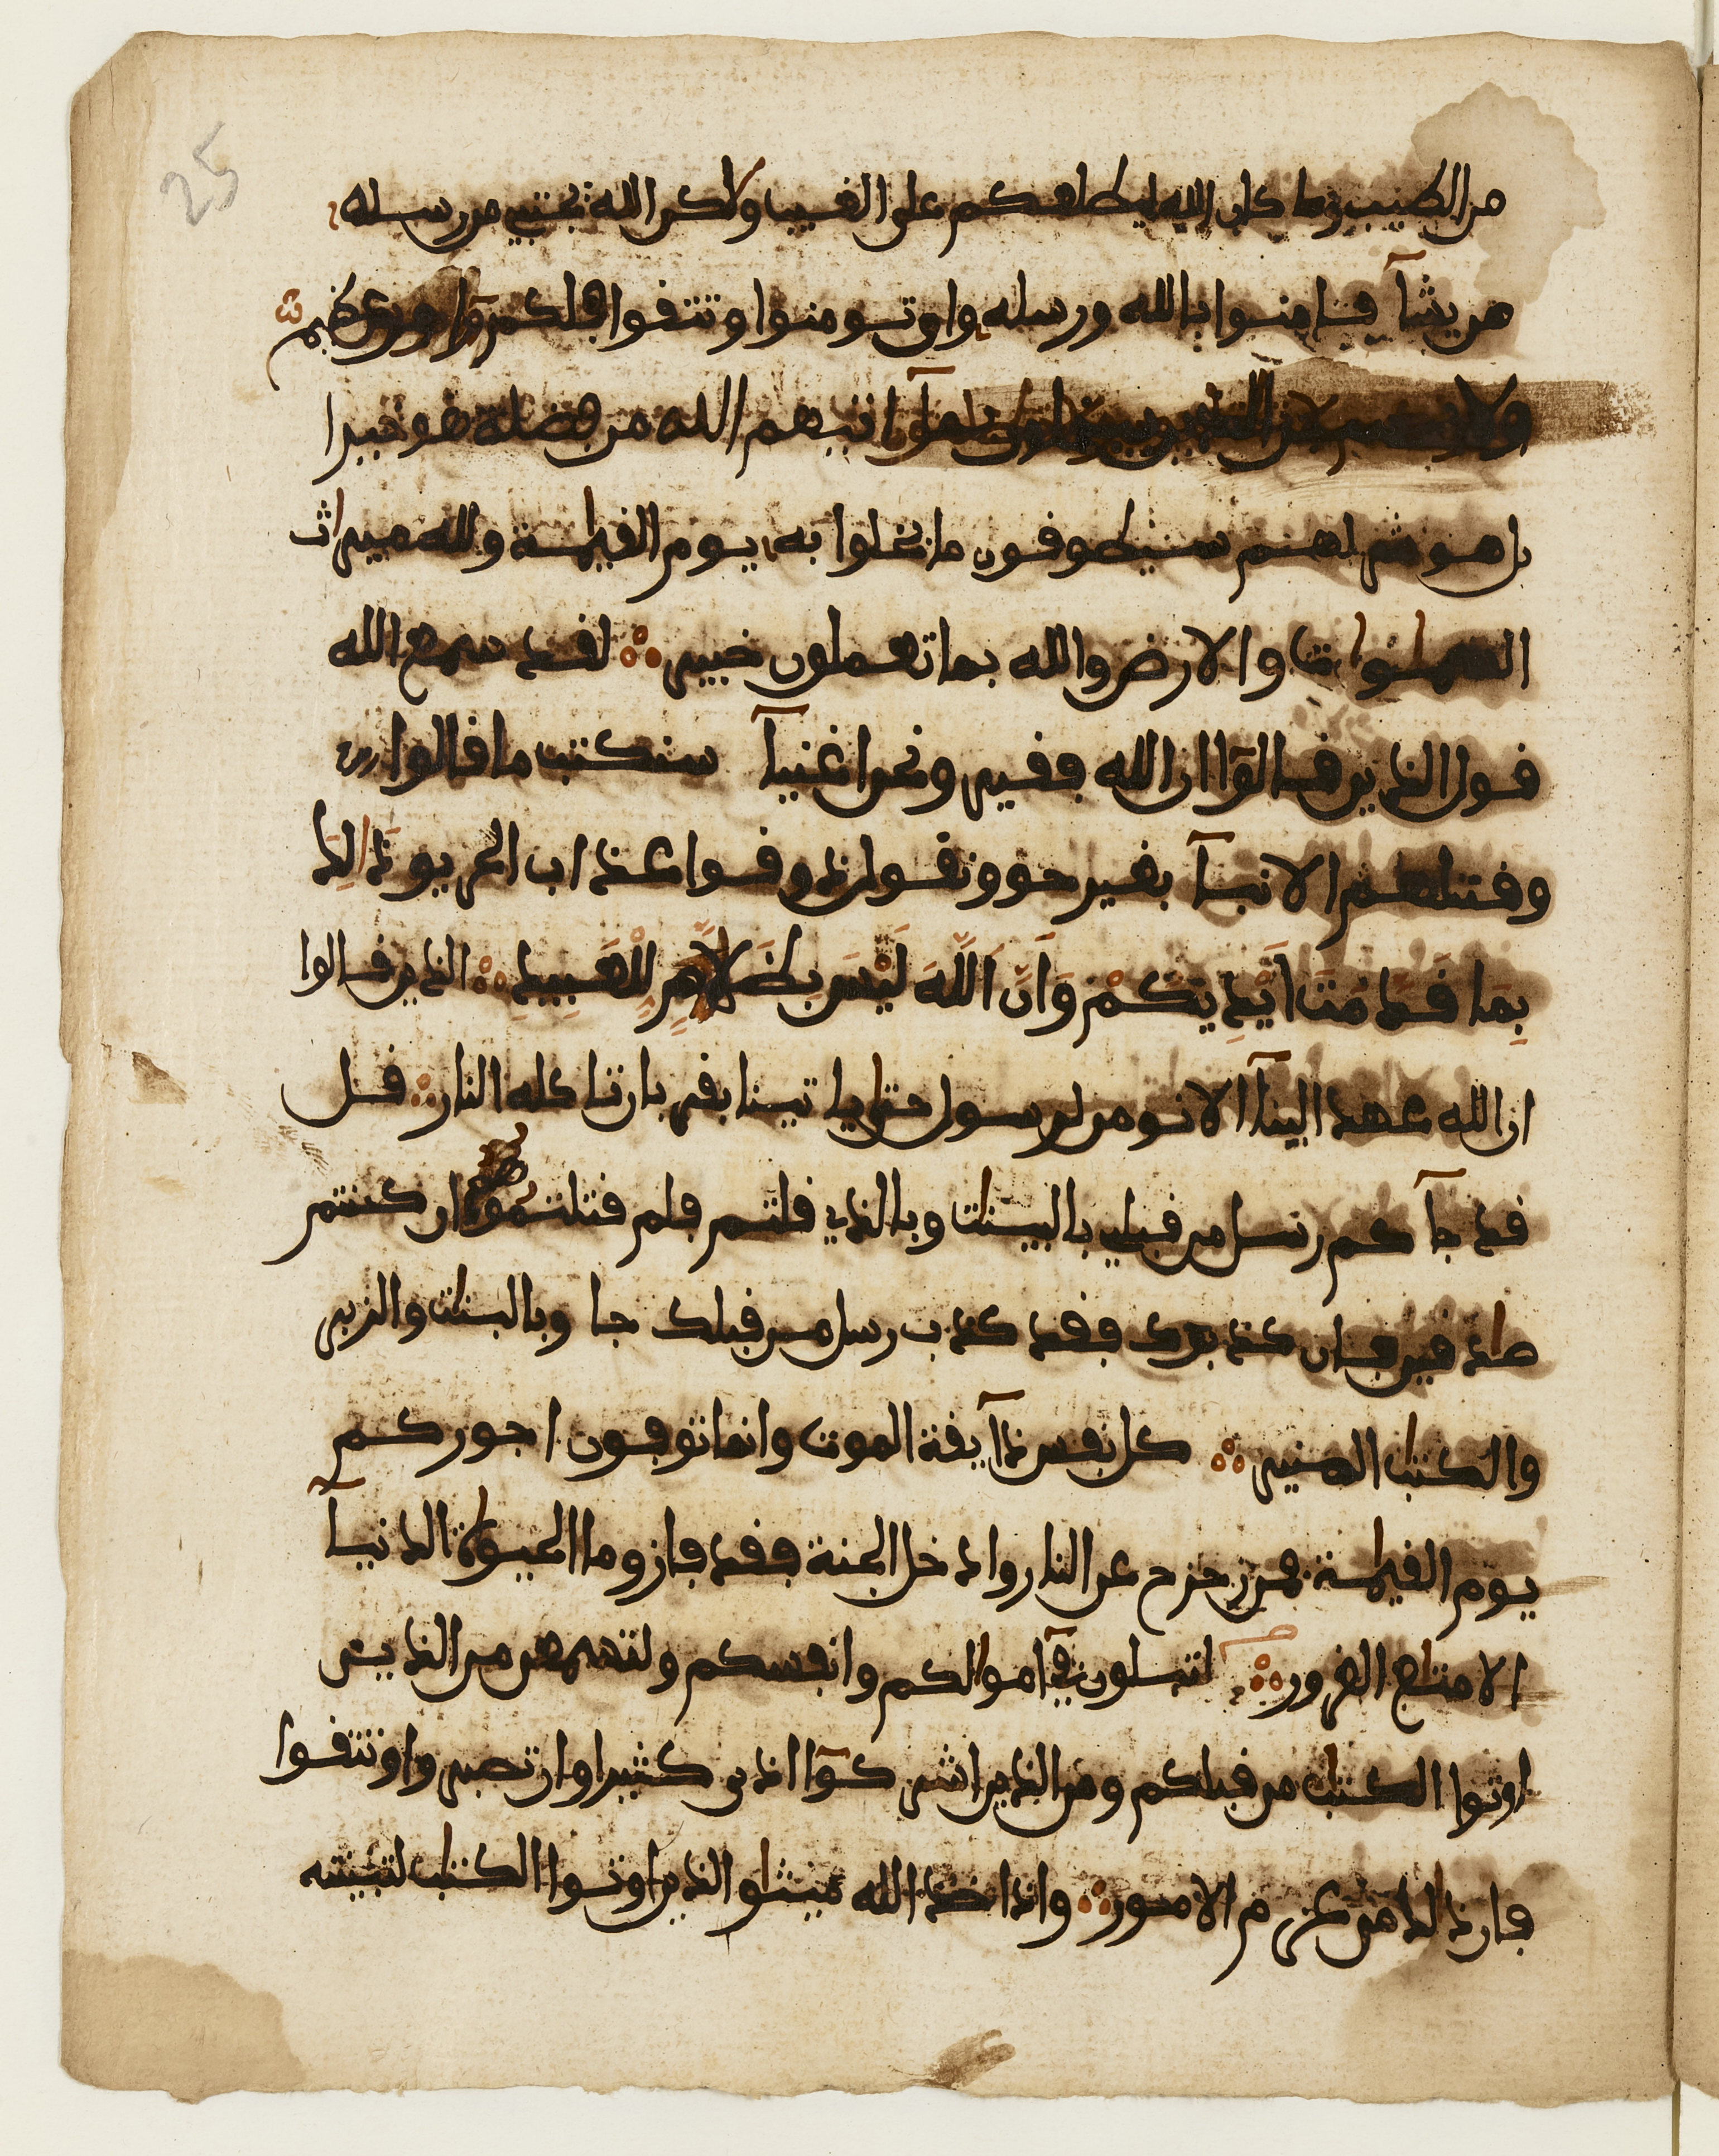 25
من الطيب وما كان الله ليطلعكم على الغيب ولاكن الله يجتبي من رسله
من يشآ فـامنوا بالله ورسله وان تومنوا وتتقوا فلكم عظيم
ولا يحسبن الذين يبخلون بمآ اتيهم الله من فضله هو خيرا
بل هو شر لهم سيطوقون ما بخلوا به يوم القيـمة ولله ميراث
السماوات والارض والله بما تعملون خبير لقد سمع الله
قول الذين قالوٓا ان الله فقير ونحن اغنيآ سنكتب ما قالوا
وقتلهم الانبيآ بغير حق ونقول ذوقوا عذاب الحريق ذَالِكَ
بِمَا قَدَّمَتَ اَيْدِيكُمْ وَاَنَّ اَللَّهَ لَيْسَ بِظَلَّامٍ لِّلْعَبِيدِ الذين قالوا
ان الله عهد الينآ الا نومن لرسول حتى ياتينا بقربان تاكله النار قل
قد جآكم رسل من قبلي بالبينات وبالذي قلتم فلم قتلتموهم ان كنتم
صادقين فان كذبوك فقد كذب رسل من قبلك جاو بالبينات والزبر
والكتاب المنير كل نفس ذآيقة الموت وانما توفون اجوركم
يوم القيامة فمن زحزح عن النار وادخل الجنة فقد فاز وما الحيوة الدنيآ
الا متاع الغرور لتبلون فيٓ اموالكم وانفسكم ولتسمعن من الذين
اوتوا الكتاب من قبلكم ومن الذين اشركوٓا اذى كثيرا وان تصبروا وتتقوا
فان ذالك من عزم الامور واذ اخذ الله ميثاق الذين اوتوا الكتاب لتبيننه